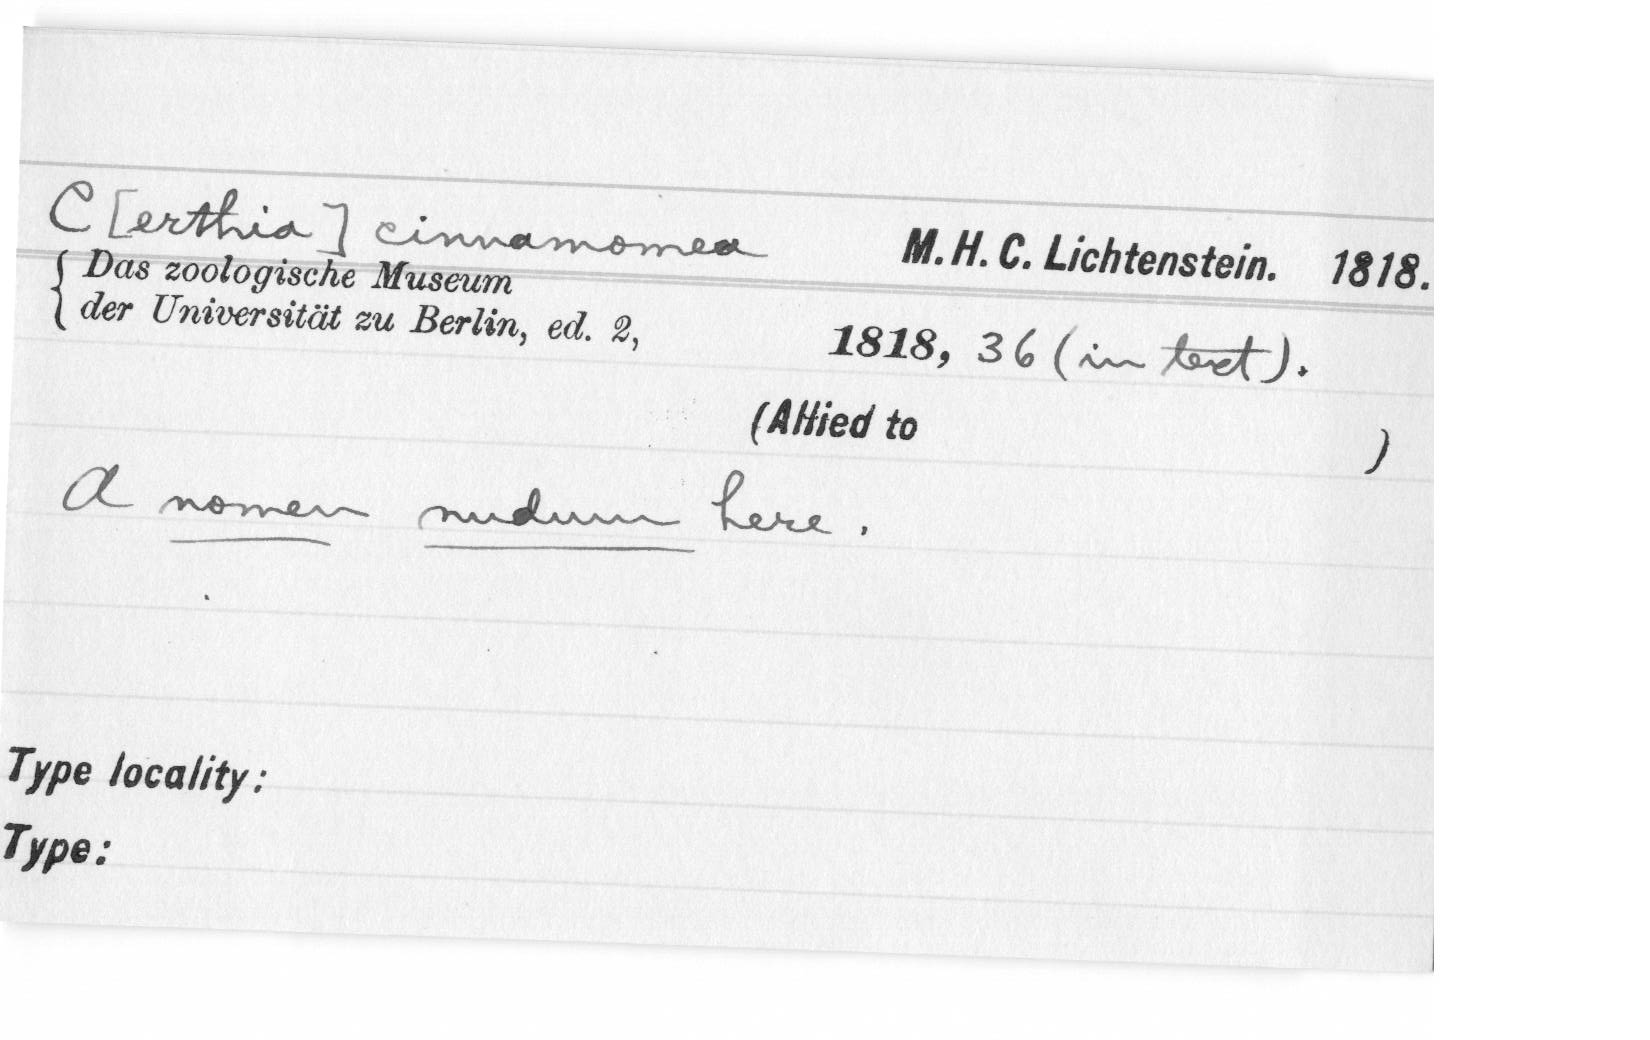 C[erthia] cinnamomea M. H. C. Lichtenstein. 1818.
{ Das zoologische Museum
der Universität zu Berlin, ed. 2, 1818, 36 (in text).
(Allied to )
A nomen nudum here.
Type locality:
Type: